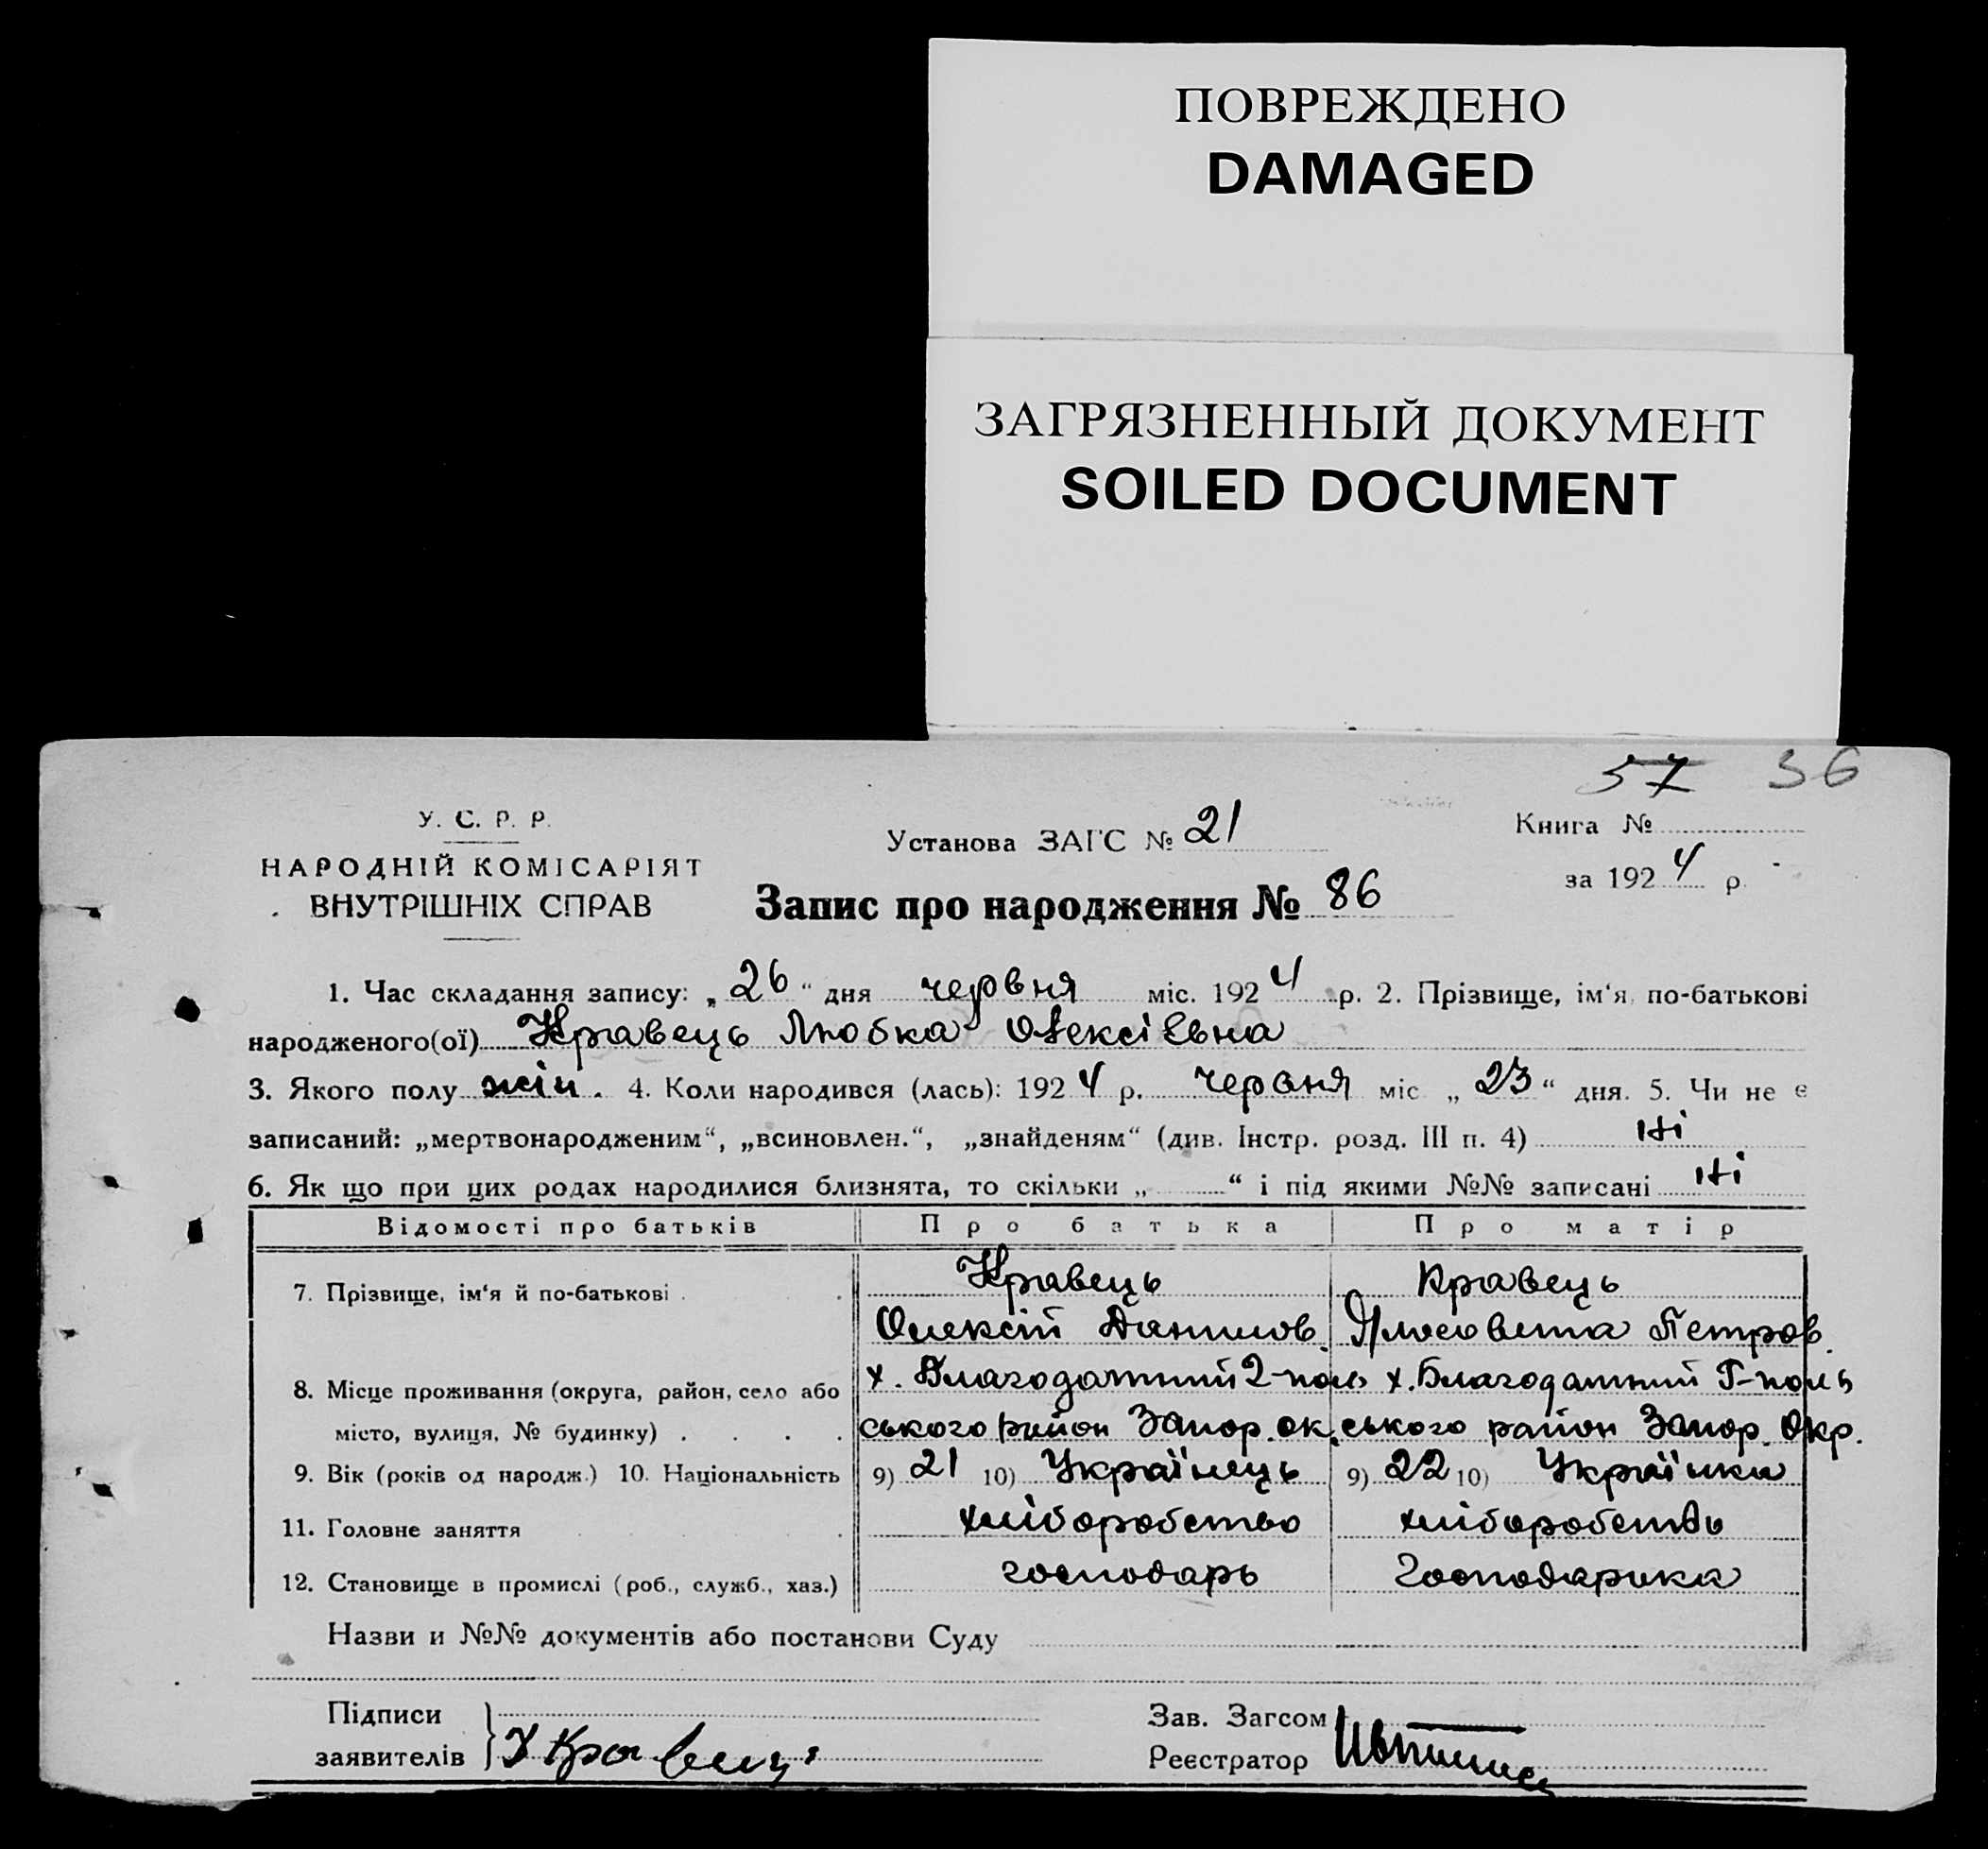 ПОВРЕЖДЕНО
DAMAGED
ЗАГРЯЗНЕННЫЙ ДОКУМЕНТ
SOILED DOCUMENT
57 36
У. С. Р. Р.
НАРОДНІЙ КОМІСАРІЯТ
ВНУТРІШНІХ СПРАВ
Установа ЗАГС № 21
Запис про народження № 86
Книга №
за 1924 р.
1. Час складання запису: „26“ дня червня міс. 1924 р. 2. Прізвище, ім‘я, по-батькові
народженого(ої) Кравець Любка Олексіевна
3. Якого полу жін. 4. Коли народився (лась): 1924 р. червня міс „23“ дня. 5. Чи не є
записаний: „мертвонародженим“, „всиновлен.“, „знайденям“ (див. Інстр. розд. III п. 4) Ні
6. Як що при цих родах народилися близнята, то скільки „ “ і під якими №№ записані Ні
Відомості про батьків Про батька Про матір
7. Прізвище, ім‘я й по-батькові Кравець Кравець
Олексій Данилов. Петров.
8. Місце проживання (округа, район, село або х. Благодатний Г-поль х. Благодатний Г-поль
місто, вулиця, № будинку) ського район Запор. ок. ського район Запор. Окр.
9. Вік (років од народж.) 10. Національність 9) 21 10) Українець 9) 22 10) Українка
11. Головне заняття хліборобство хліборобство
12. Становище в промислі (роб., служб., хаз.) господарь господарика
Назви и №№ документів або постанови Суду
Підписи
заявителів Кравець
Зав. Загсом
Реєстратор